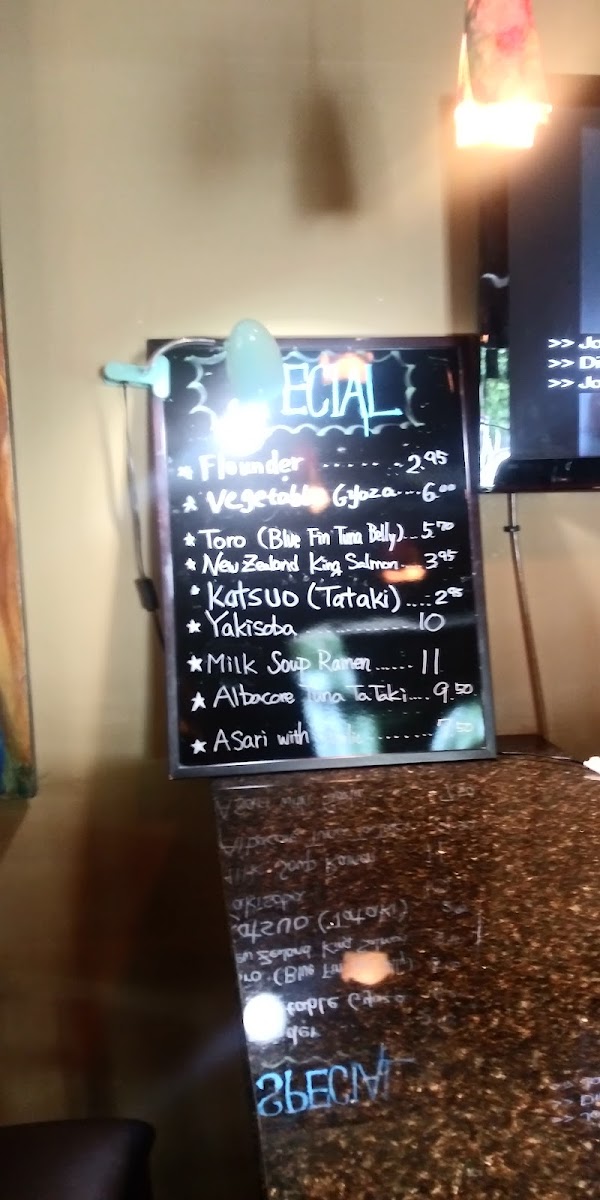 SPECIAL
★ Flounder ...... 2.95
★ Vegetable Gyoza ... 6.00
★ Toro (Blue Fin Tuna Belly) .. 5.70
★ New Zealand King Salmon .. 3.95
* Katsuo (Tataki) .... 2.95
★ Yakisoba .......... 10
★ Milk Soup Ramen ...... 11
★ Albacore Tuna TaTaki .... 9.50
★ Asari with ........ 7.50
>> Jo
>> Di
>> Jo